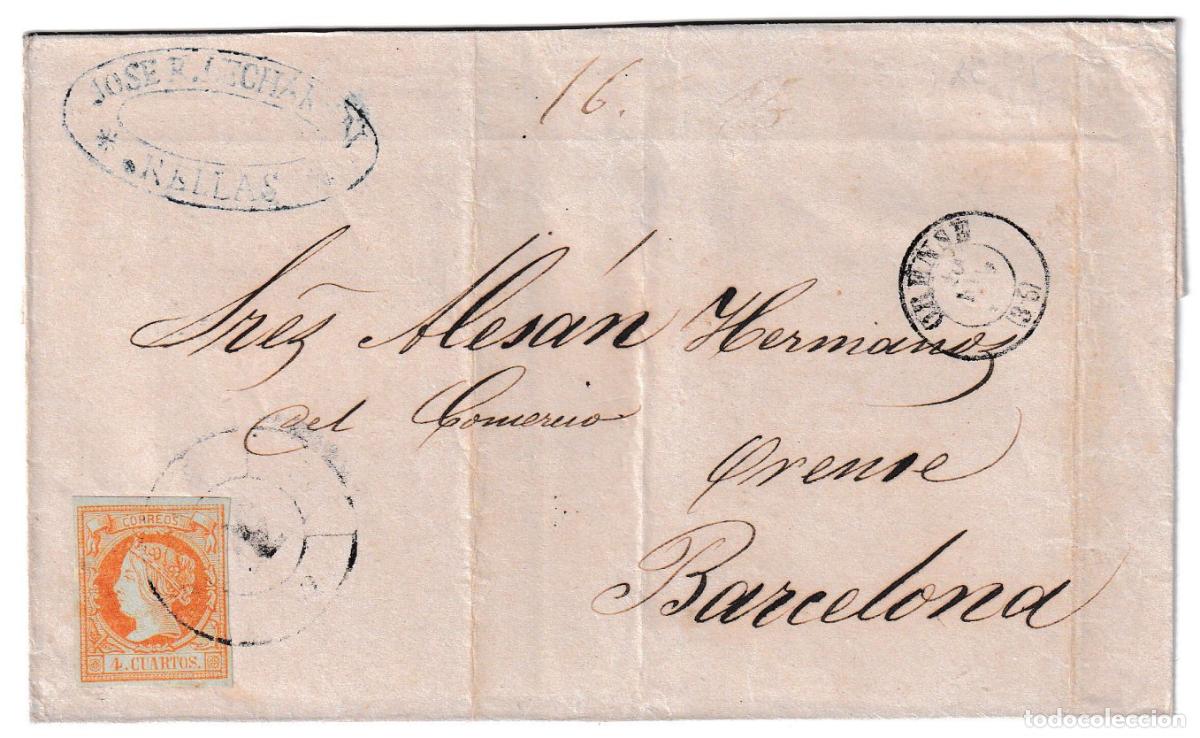 JOSE R.
* ORELLAS *
16.
ORENSE
35
Sres Alesán Hermanos
del Comercio
Orense
Barcelona
CORREOS
4. CUARTOS.
todocoleccion